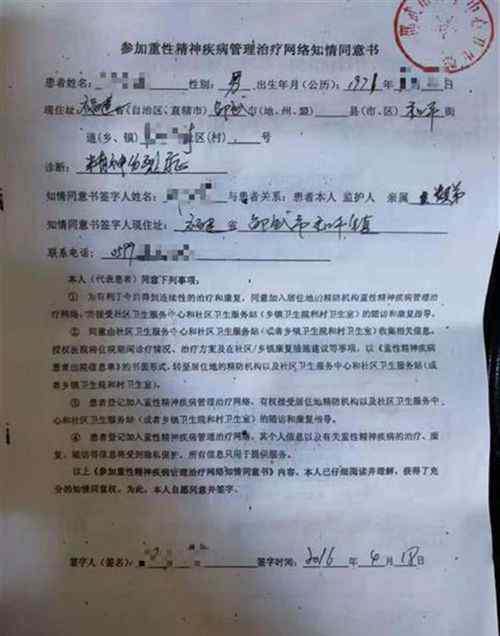 参加重性精神疾病管理治疗网络知情同意书
患者姓名： 性别：男 出生年月（公历）：1971年 月 日
现住址：福建省（自治区、直辖市）邵武市（地、州、盟） 县（市、区）和平街
道（乡、镇） 社区（村） 号
诊断：精神分裂症
知情同意书签字人姓名： 与患者关系：患者本人 监护人 亲属
知情同意书签字人现住址：福建省邵武市和平镇
联系电话：0599
本人（代表患者）同意下列事项：
① 为有利于今后得到连续性的治疗和康复，同意加入居住地的精防机构重性精神疾病管理治
疗网络，并接受社区卫生服务中心和社区卫生服务站（乡镇卫生院和村卫生室）的随访和康复指导。
② 同意由社区卫生服务中心和社区卫生服务站（或者乡镇卫生院和村卫生室）收集相关信息，
授权医院将住院期间诊疗情况、治疗方案及在社区/乡镇康复措施建议等事项，以《重性精神疾病
患者出院信息单》的书面形式，转至居住地的精防机构以及社区卫生服务中心和社区卫生服务站（或
者乡镇卫生院和村卫生室）。
③ 患者登记加入重性精神疾病管理治疗网络，有权接受居住地精防机构以及社区卫生服务中
心和社区卫生服务站（或者乡镇卫生院和村卫生室）的随访和康复指导。
④ 患者登记加入重性精神疾病管理治疗网络，其个人信息以及有关重性精神疾病的治疗、康
复、随访等信息将受到隐私保护，所有信息只用于提供服务。
以上《参加重性精神疾病管理治疗网络知情同意书》内容，本人已仔细阅读并理解，获得了充
分的知情同意权，为此，本人自愿同意并签字。
签字人（签名）： 签字时间：2016年4月18日